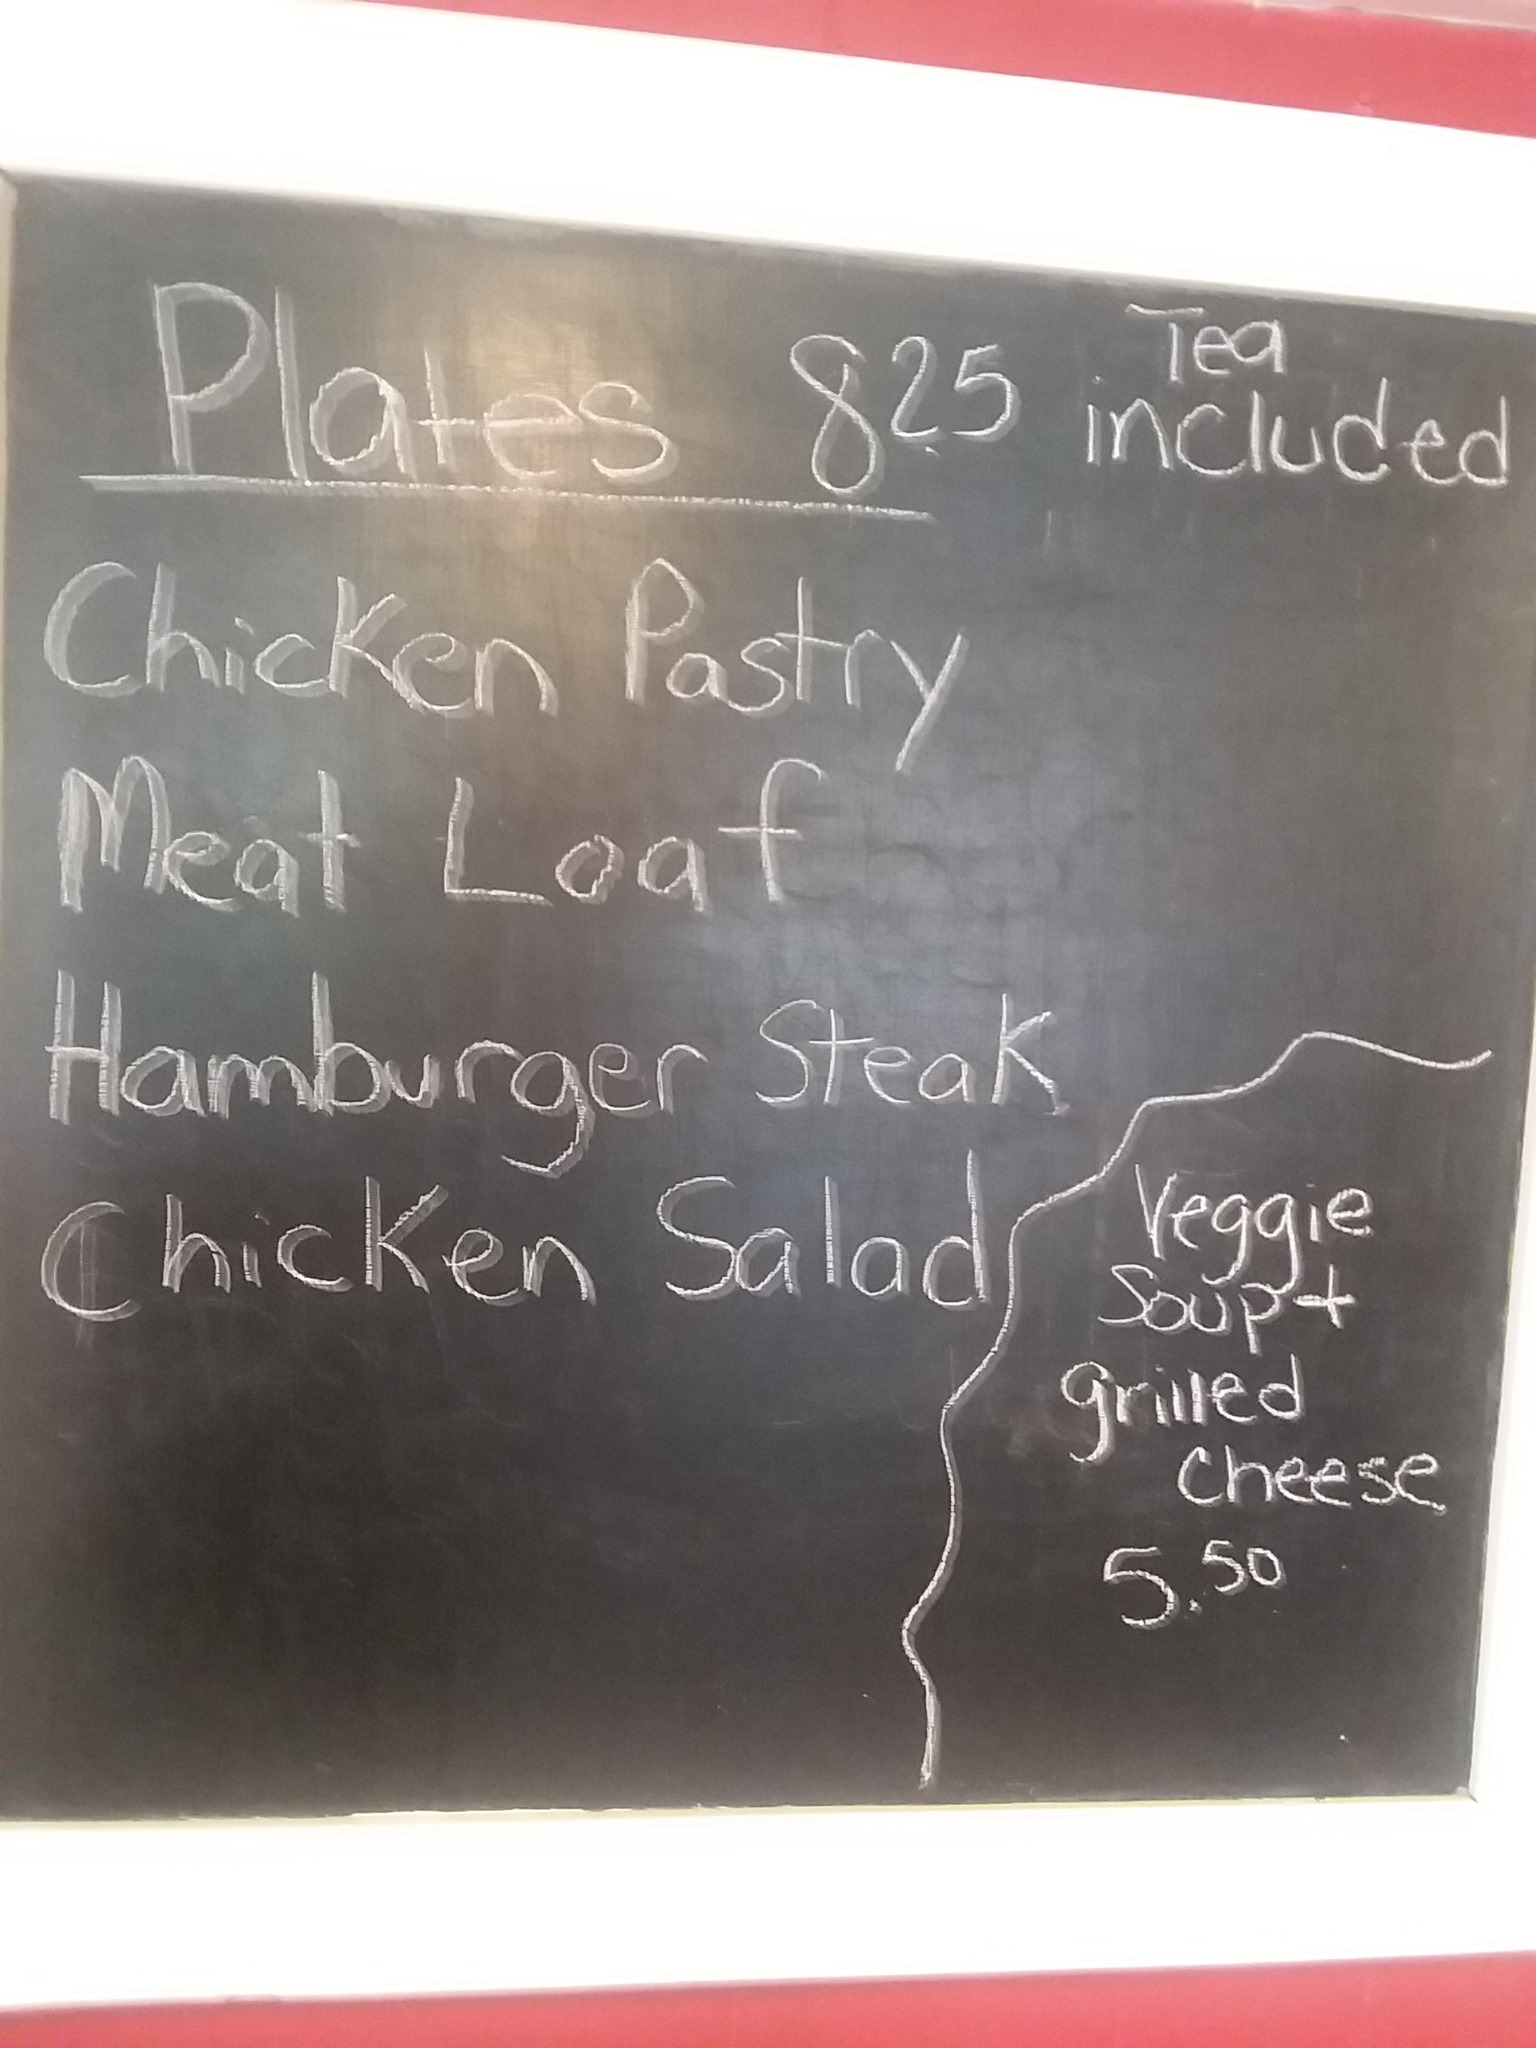 Plates 8.25 Tea included
Chicken Pastry
Meat Loaf
Hamburger Steak
Chicken Salad
Veggie
Soup +
grilled
cheese
5.50